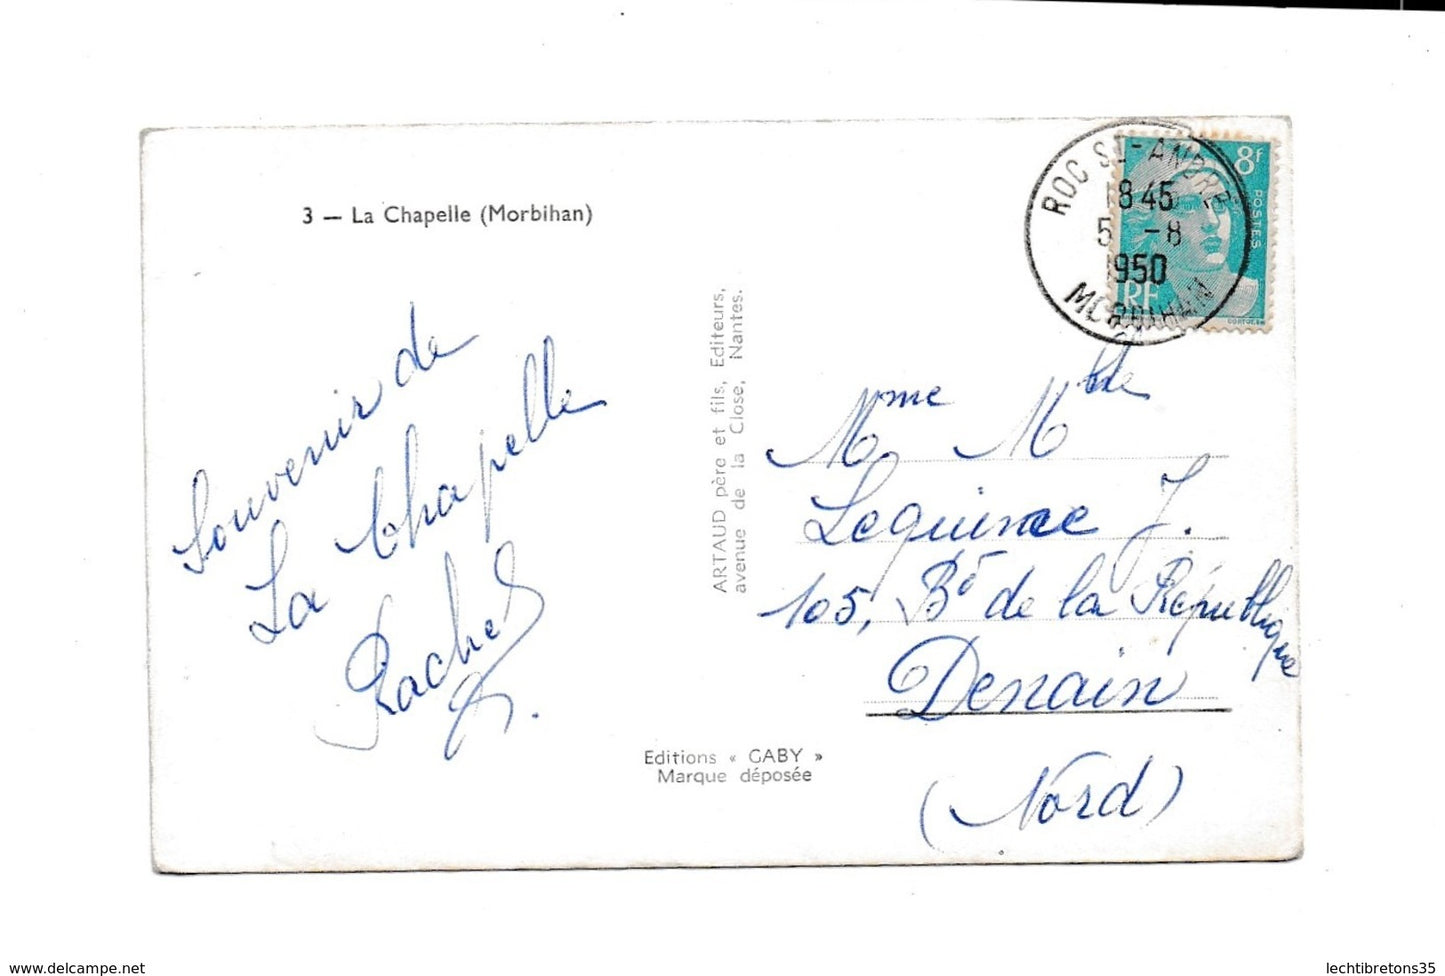 3 — La Chapelle (Morbihan)
Souvenir de
La Chapelle
Rachel
ARTAUD père et fils, Editeurs,
avenue de la Close, Nantes.
Editions « GABY »
Marque déposée
ROC ST-ANDRE
18 45
5 -8
1950
MORBIHAN
8F
POSTES
RF
Mme Mlle
Lequince J.
105, Bd de la République
Denain
(Nord)
www.delcampe.net
lechtibretons35